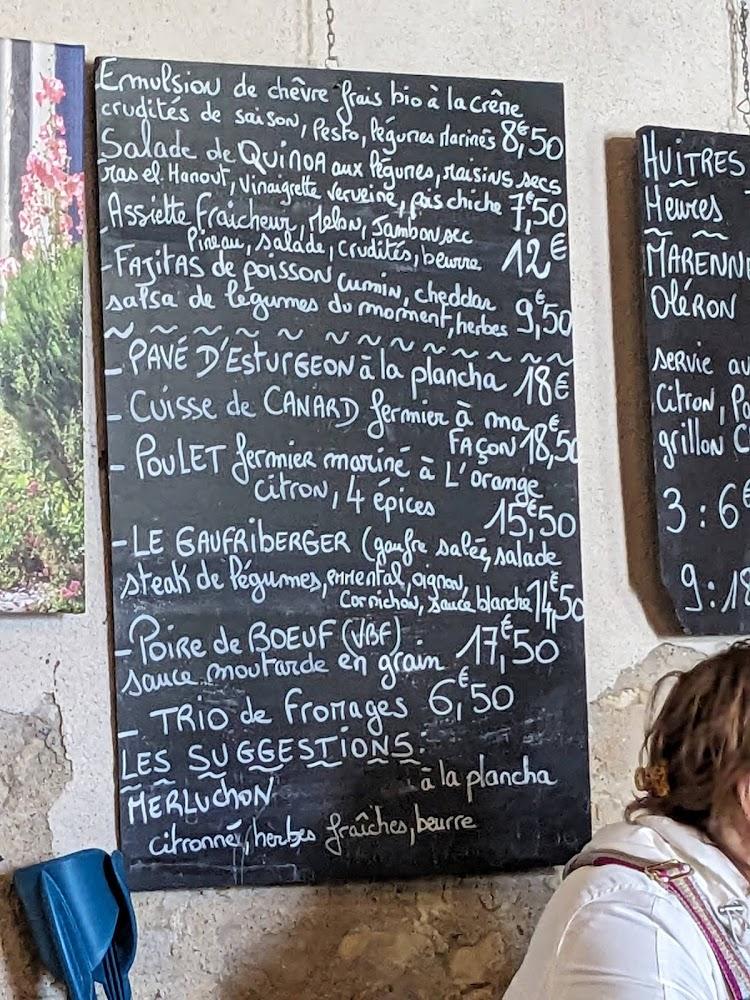 Emulsion de chêvre frais bio à la crême
crudités de saison, Pesto, légumes Marinés 8€,50
Salade de QUINOA aux légumes, raisins secs
ras el Hanout, Vinaigrette Verveine, pois chiche 7€,50
- Assiette Fraicheur, Melon, Jambon sec
Pineau, salade, crudités, beurre 12€
- FAJITAS de poisson cumin, cheddar
salsa de légumes du moment, herbes 9€,50
~ ~ ~ ~ ~ ~ ~ ~ ~ ~ ~ ~ ~
- PAVÉ D'ESTURGEON à la plancha 18€
- CUISSE de CANARD fermier à ma
FAÇON 18€,50
- POULET fermier mariné à L'orange
citron, 4 épices 15€,50
- LE GAUFRIBERGER (gaufre salée, salade
steak de légumes, emmental, oignon,
Cornichon, sauce blanche 14€,50
- Poire de BOEUF (VBF) 17€,50
sauce moutarde en grain
- TRIO de Fromages 6€,50
LES SUGGESTIONS:
MERLUCHON à la plancha
citronné, herbes fraîches, beurre
HUITRES
MARENNE
Oléron
servie au
Citron, Pa
grillon C
3 : 6€
9 : 18